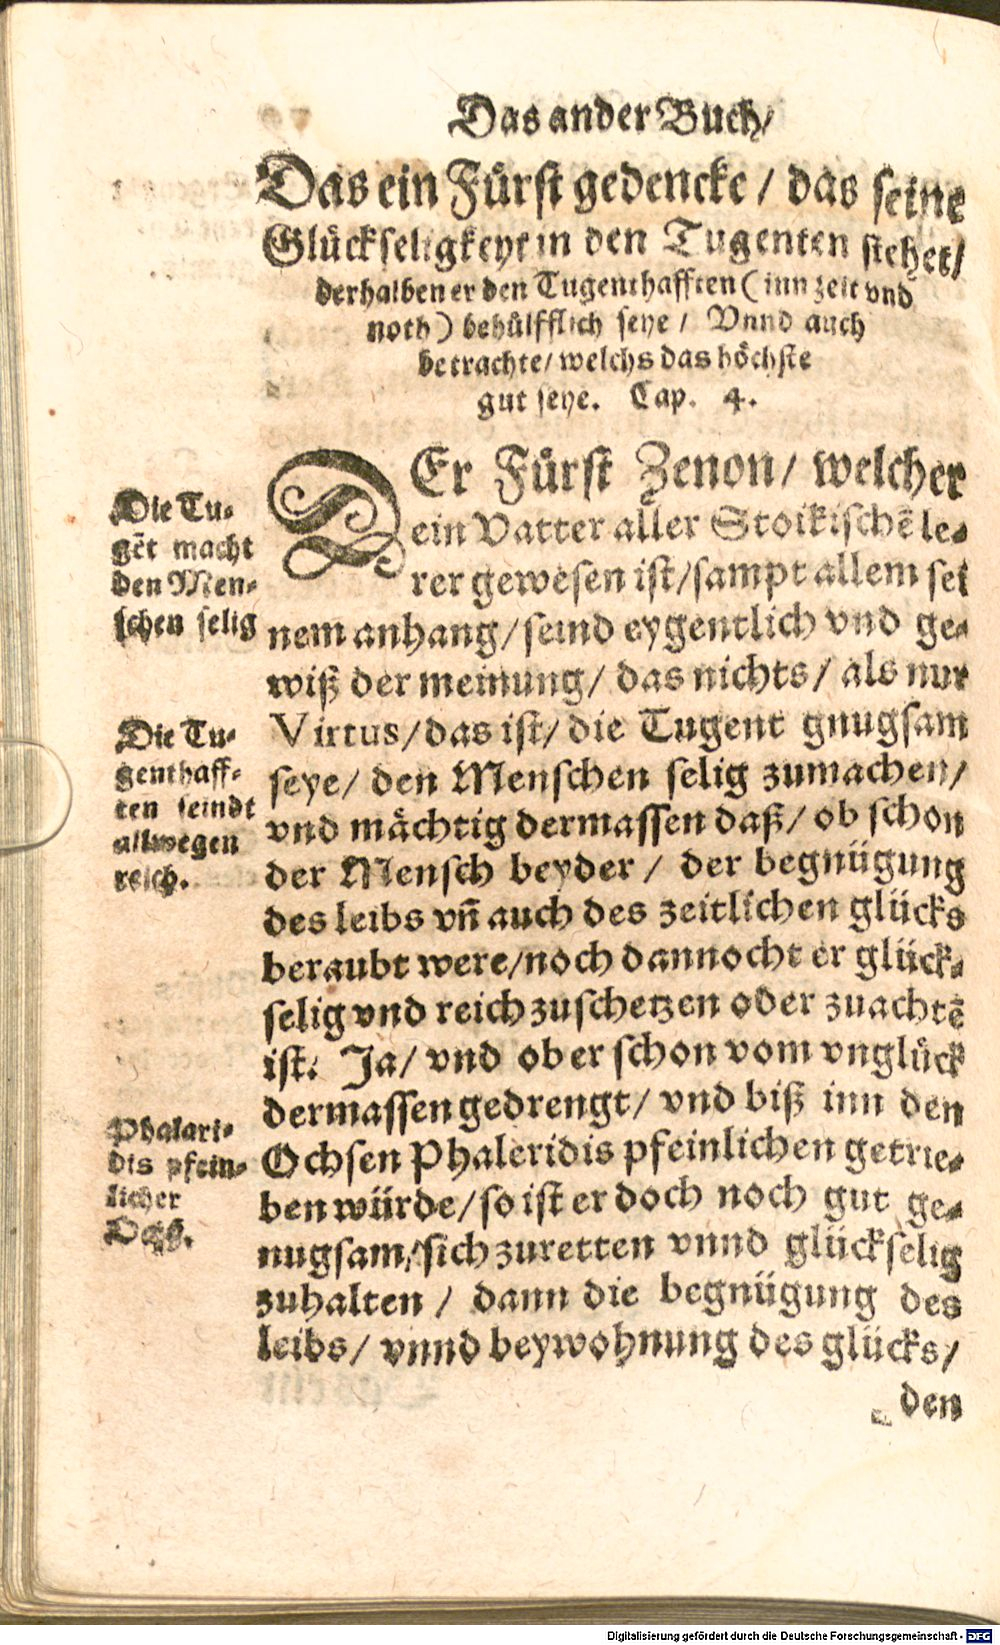 Das ander Buch/
Das ein Fürst gedencke / das seine
Glückseligkeyt in den Tugenten stehet/
derhalben er den Tugenthafften ( inn zeit vnd
noth ) behülfflich seye / Vnnd auch
betrachte/ welchs das höchste
gut seye. Cap. 4.
DEr Fürst Zenon/ welcher
ein Vatter aller Stoikischē le-
rer gewesen ist/sampt allem sei
nem anhang/seind eygentlich vnd ge-
wiß der meinung/ das nichts/ als nur
Virtus/das ist/ die Tugent gnugsam
seye/ den Menschen selig zumachen/
vnd mächtig dermassen daß/ ob schon
der Mensch beyder / der begnügung
des leibs vñ auch des zeitlichen glücks
beraubt were/noch dannocht er glück-
selig vnd reich zuschetzen oder zuachtē
ist. Ja/ vnd ob er schon vom vnglück
dermassen gedrengt/ vnd biß inn den
Ochsen Phaleridis pfeinlichen getrie-
ben würde/so ist er doch noch gut ge-
nugsam/sich zuretten vnnd glückselig
zuhalten / dann die begnügung des
leibs/ vnnd beywohnung des glücks/
den
Die Tu-
gēt macht
den Men-
schen selig
Die Tu-
genthaff-
ten seindt
allwegen
reich.
Phalari-
dis pfein-
licher
Ochß.
Digitalisierung gefördert durch die Deutsche Forschungsgemeinschaft - DFG